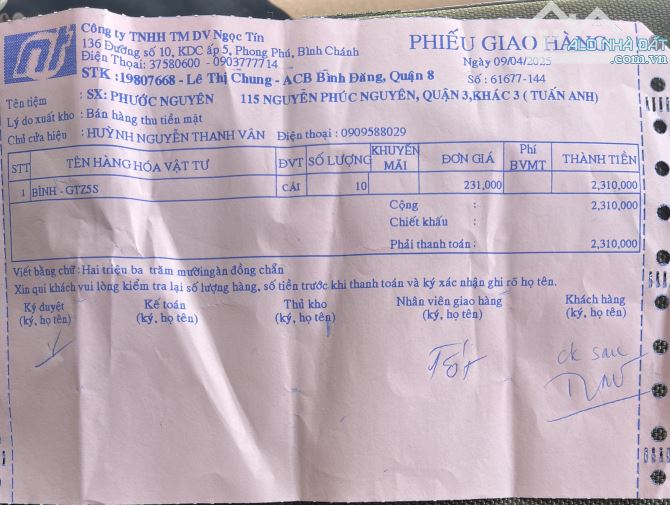 nt
Công ty TNHH TM DV Ngọc Tín
136 Đường số 10, KDC ấp 5, Phong Phú, Bình Chánh
Điện Thoại: 37580600 - 0903777714
STK :19807668 - Lê Thị Chung - ACB Bình Đăng, Quận 8
PHIẾU GIAO HÀNG
ALO NHÀ ĐẤT
.com.vn
Ngày 09/04/2025
Số : 61677-144
Tên tiệm : SX: PHƯỚC NGUYÊN 115 NGUYỄN PHÚC NGUYÊN, QUẬN 3,KHÁC 3 ( TUẤN ANH )
Lý do xuất kho : Bán hàng thu tiền mặt
Chủ cửa hiệu : HUỲNH NGUYỄN THANH VÂN Điện thoại : 0909588029
STT TÊN HÀNG HÓA VẬT TƯ ĐVT SỐ LƯỢNG KHUYẾN MÃI ĐƠN GIÁ Phí BVMT THÀNH TIỀN
1 BÌNH - GTZ5S CÁI 10 231,000 2,310,000
Cộng : 2,310,000
Chiết khấu :
Phải thanh toán : 2,310,000
Viết bằng chữ : Hai triệu ba trăm mườingàn đồng chẵn
Xin quí khách vui lòng kiểm tra lại số lượng hàng, số tiền trước khi thanh toán và ký xác nhận ghi rõ họ tên.
Ký duyệt Kế toán Thủ kho Nhân viên giao hàng Khách hàng
(ký, họ tên) (ký, họ tên) (ký, họ tên) (ký, họ tên) (ký, họ tên)
ck sau